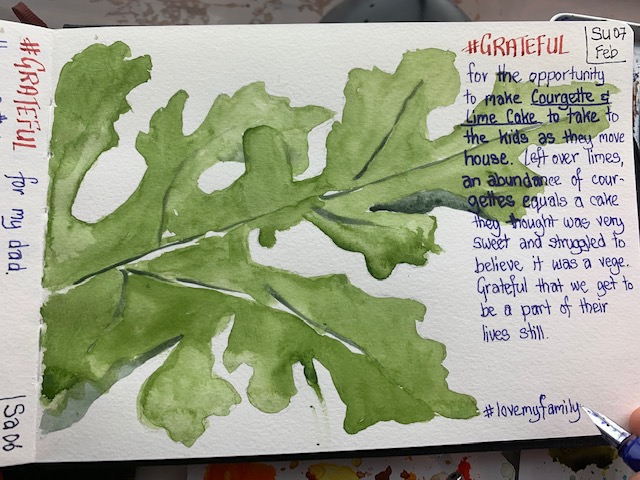 #GRATEFUL
for my dad.
Sa 06
#GRATEFUL
Su 07
Feb
for the opportunity
to make Courgette &
Lime Cake to take to
the kids as they move
house. Left over limes,
an abundance of cour-
gettes equals a cake
they thought was very
sweet and struggled to
believe it was a vege.
Grateful that we get to
be a part of their
lives still.
#lovemyfamily